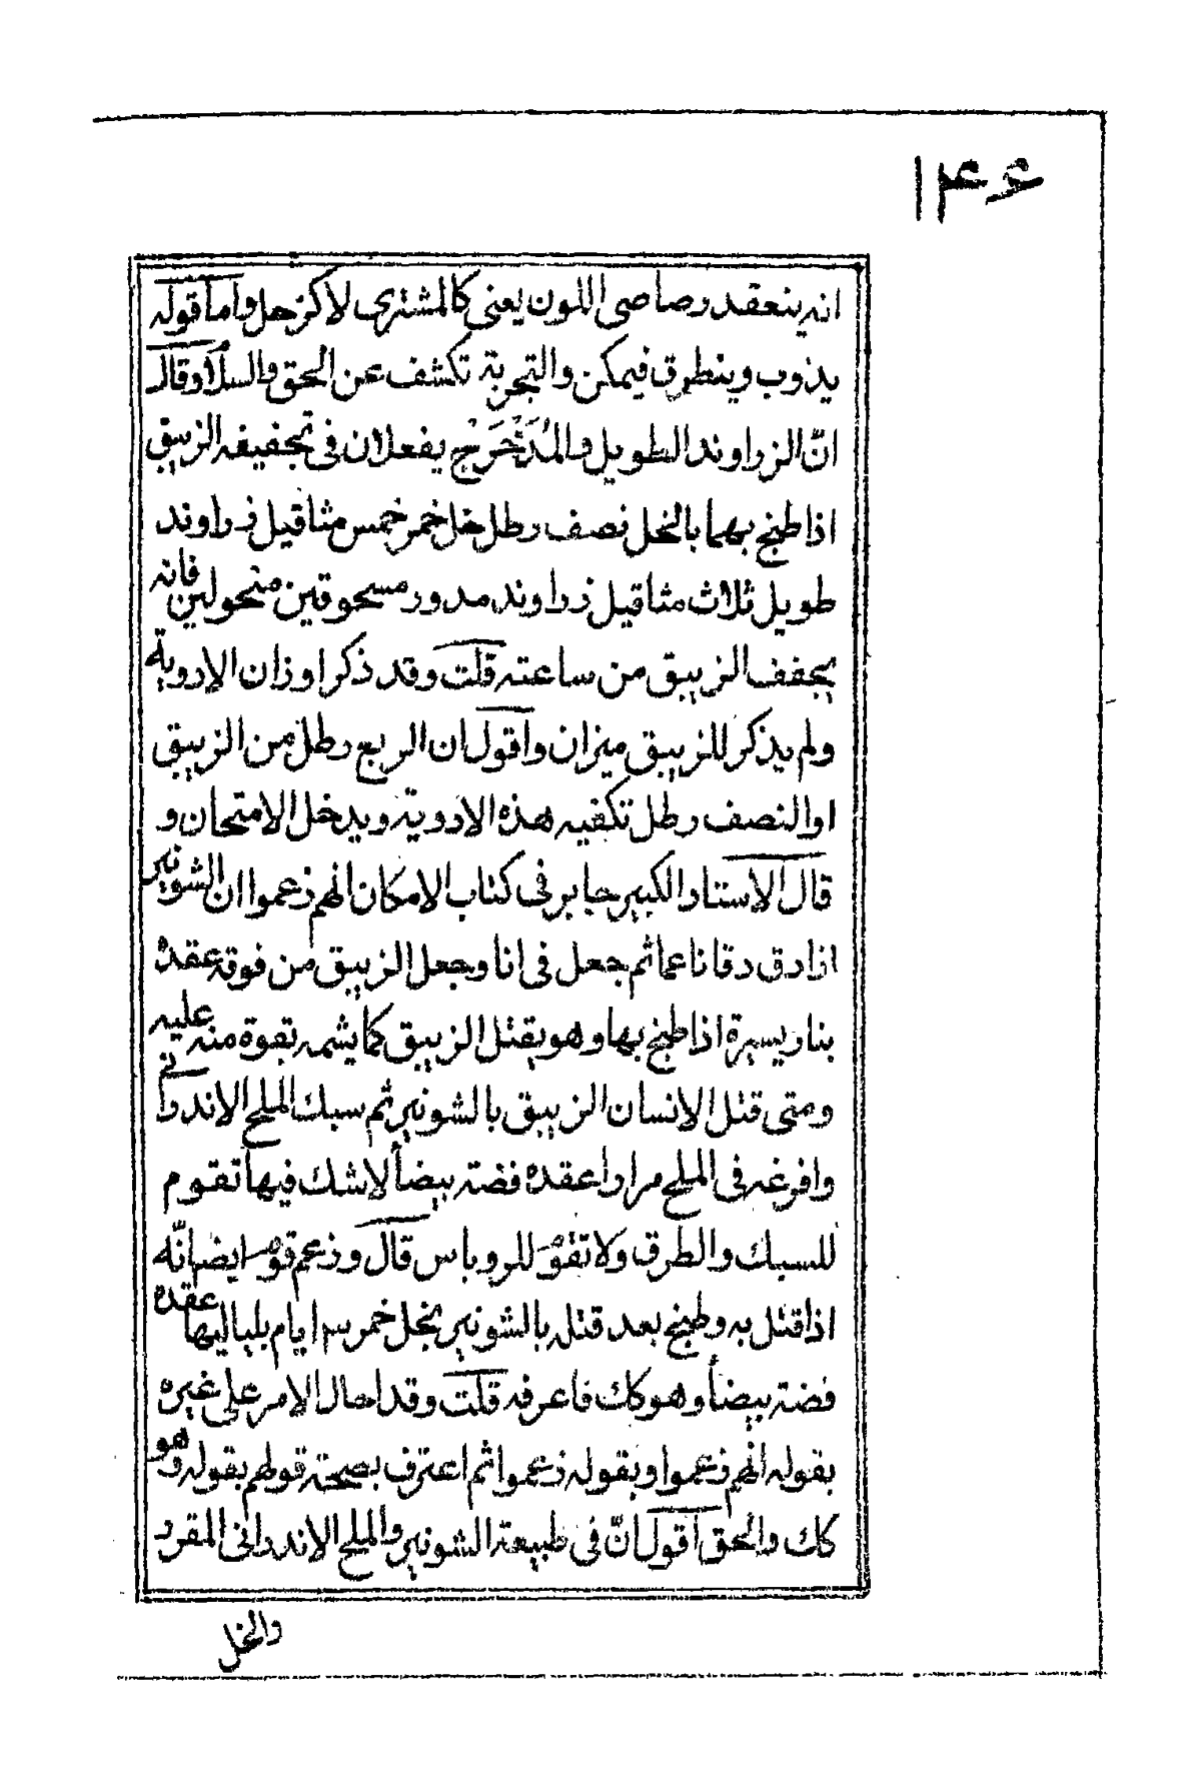 ۱۴۶
انه ينعقد رصاصى اللون يعنى كالمشترى لا كزحل واما قوله
يذوب وينطرق فيمكن والتجربة تكشف عن الحق والسلام وقال
انّ الزراوند الطويل والمُدَحْرَج يفعلان فى تجفيفه الزيبق
اذا طبخ بهما بالخل نصف رطل خل خمر خمس مثاقيل زراوند
طويل ثلاث مثاقيل زراوند مدور مسحوقين منخولين فانه
يجفف الزيبق من ساعته قلت وقد ذكر اوزان الادوية
ولم يذكر للزيبق ميزان واقول ان الربع رطل من الزيبق
او النصف رطل تكفيه هذه الادوية ويدخل الامتحان و
قال الاستاد الكبير جابر فى كتاب الامكان انهم زعموا ان الشونيز
اذا دق دقا ناعما ثم جعل فى انا وجعل الزيبق من فوقه عقده
بنار يسيرة اذا طبخ بها وهو يقتل الزيبق كما يشمه بقوة منه عليه
ومتى قتل الانسان الزيبق بالشونيز ثم سبك الملح الاندرانى
وافرغه فى الملح مرارا عقده فضة بيضأ لا شك فيها تقوم
للسبك والطرق ولا تقوم للروباس قال وزعم قوم ايضا انّه
اذا قتل به وطبخ بعد قتله بالشونيز بخل خمر ٣ ايام بلياليها عقده
فضة بيضأ وهو كك فاعرفه قلت وقد احال الامر على غيره
بقوله انهم زعموا وبقوله زعموا ثم اعترف بصحة قولهم بقوله وهو
كك والحق اقول انّ فى طبيعة الشونيز والملح الاندرانى المقرر
والخل